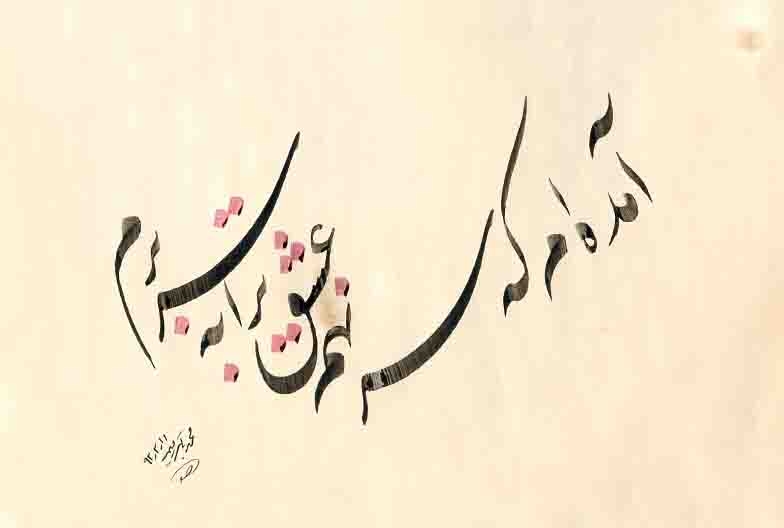 آمده ام که سر نهم عشق ترا به سر برم